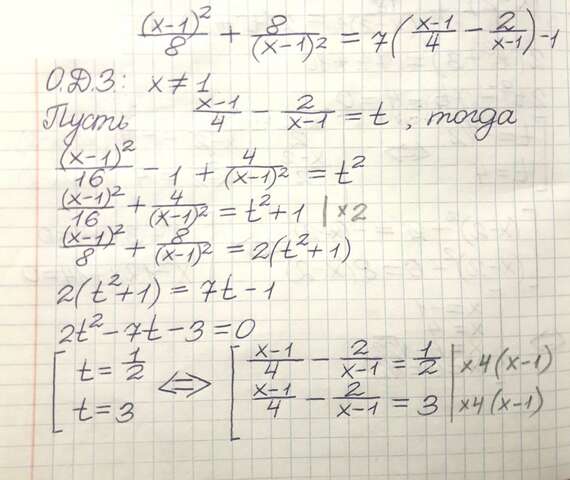 (x-1)²/8 + 8/(x-1)² = 7((x-1)/4 - 2/(x-1)) - 1
О.Д.З.: x ≠ 1
Пусть (x-1)/4 - 2/(x-1) = t, тогда
(x-1)²/16 - 1 + 4/(x-1)² = t²
(x-1)²/16 + 4/(x-1)² = t²+1 | ×2
(x-1)²/8 + 8/(x-1)² = 2(t²+1)
2(t²+1) = 7t - 1
2t² - 7t - 3 = 0
[ t = 1/2 ⇔ [ (x-1)/4 - 2/(x-1) = 1/2 | ×4(x-1)
t = 3 (x-1)/4 - 2/(x-1) = 3 | ×4(x-1)